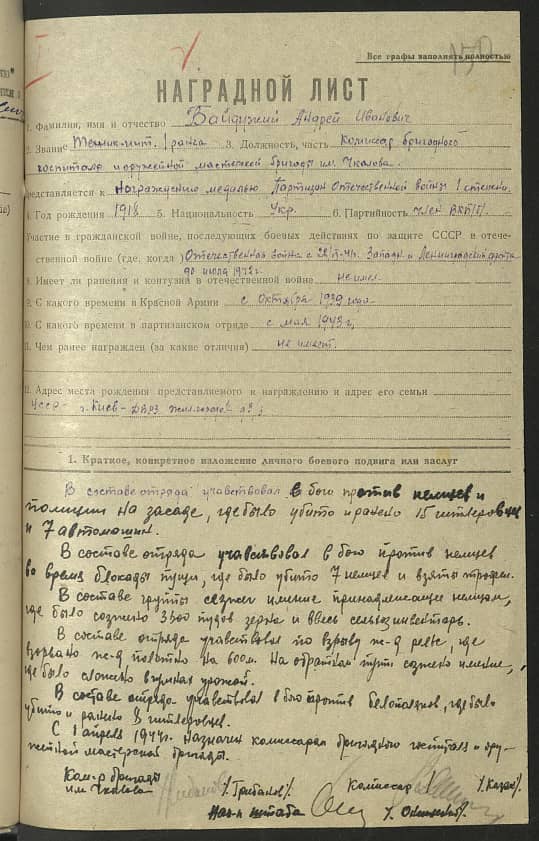 Все графы заполнять полностью
150
НАГРАДНОЙ ЛИСТ
1. Фамилия, имя и отчество Байдужий Андрей Иванович
2. Звание Техник-инт. 1 ранга 3. Должность, часть Комиссар бригадного
госпиталя и оружейной мастерской бригады им. Чкалова.
представляется к Награждению медалью Партизан Отечественной войны 1 степени.
4. Год рождения 1918 5. Национальность Укр. 6. Партийность член ВКП/б/.
Участие в гражданской войне, последующих боевых действиях по защите СССР в отече-
ственной войне (где, когда) Отечественная война с Западн и Ленинградский фронта
до июля 1942г.
8. Имеет ли ранения и контузия в отечественной войне не имел
9. С какого времени в Красной Армии с октября 1939 года
10. С какого времени в партизанском отряде с мая 1943 г,
11. Чем ранее награжден (за какие отличия) не имеет.
12. Адрес места рождения представляемого к награждению и адрес его семьи
УССР - г. Киев - ДВРЗ
1. Краткое, конкретное изложение личного боевого подвига или заслуг
В составе отряда учавствовал в бою против немцев и
полиции на засаде, где было убито и ранено 15 гитлеровцев
и 7 автомашин.
В составе отряда учавствовал в бою против немцев
во время блокады пущи, где было убито 7 немцев и взяты трофеи.
В составе группы сжег имение принадлежащее немцам,
где было сожжено 3500 пудов зерна и ввесь сельхозинвентарь.
В составе отряда учавствовал по взрыву ж-д рельс, где
взорвано ж-д полотно на 600м. На обратном пути сожжено имение,
где было сложено урожай.
В составе отряда учавствовал в бою против белополяков, где было
убито и ранено 8 гитлеровцев.
С 1 апреля 1944г. Назначен комиссаром бригадного госпиталя и ору-
жейной мастерской бригады.
Ком-р бригады
им. Чкалова /Грибанов/. Комиссар /Казак/.
Нач-к штаба